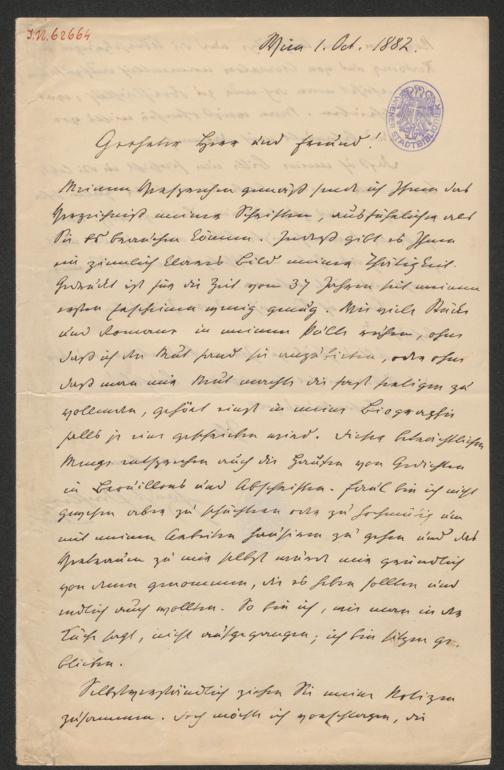 J.N. 62664
Wien 1. Oct. 1882.
WIENER STADTBIBLIOTHEK
Geehrter Herr und Freund!
Meinem Versprechen gemäß sende ich Ihnen das
Verzeichniß meiner Schriften, ausführlicher als
Sie es brauchen können. Indeß gibt es Ihnen
ein ziemlich klares Bild meiner Thätigkeit.
Gedruckt ist für die Zeit von 37 Jahren seit meinem
ersten Erscheinen wenig genug. Wie viele Stücke
und Romane in meinem Pulte ruhen, ohne
daß ich den Mut fand sie anzubieten, oder ohne
daß man mir Mut machte die fast fertigen zu
vollenden, gehört einst in meine Biographie
falls je eine geschrieben wird. Dieser beträchtlichen
Menge entsprechen auch die Haufen von Gedichten
in Brouillons und Abschriften. Faul bin ich nicht
gewesen aber zu schüchtern oder zu hochmütig um
mit meinen Arbeiten hausieren zu gehen und das
Vertrauen zu mir selbst wurde mir gründlich
von denen genommen, die es heben sollten und
endlich auch wollten. So bin ich, wie man in der
Küche sagt, nicht aufgegangen; ich bin sitzen ge-
blieben.
Selbstverständlich ziehen Sie meine Notizen
zusammen. Doch möchte ich vorschlagen, die